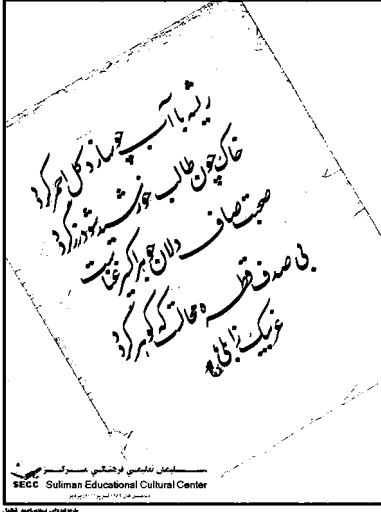 ریشه با آب چو سازد گل احمر گردد
خاک چون طالب خورشید شود زر گردد
صحبت صاف دلان جوهر اکسیر غناست
بی صدف قطره محالست که گوهر گردد
سلیمان تعلیمي فرهنګي مرکز
SECC Suliman Educational Cultural Center